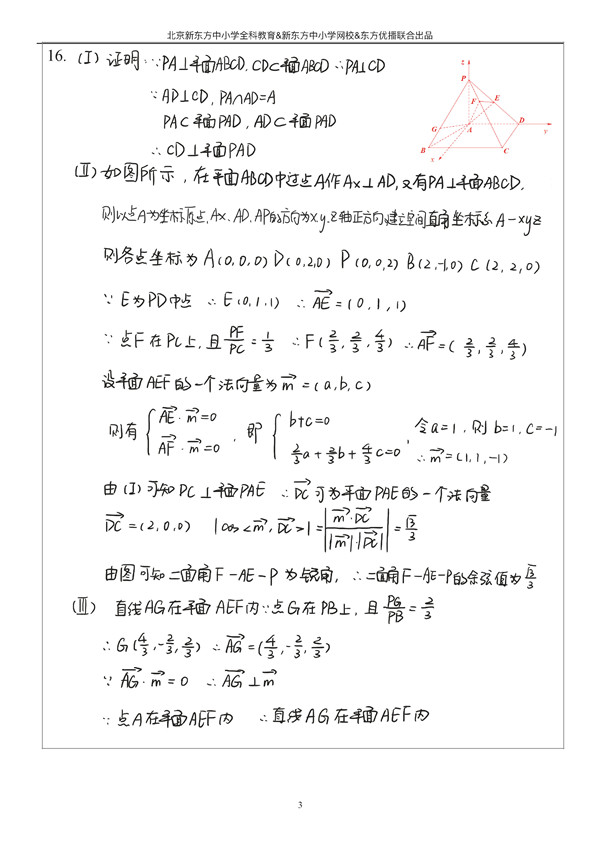 北京新东方中小学全科教育&新东方中小学网校&东方优播联合出品
16. (Ⅰ) 证明：∵PA⊥平面ABCD, CD⊂平面ABCD ∴PA⊥CD
∵AD⊥CD, PA∩AD=A
PA⊂平面PAD, AD⊂平面PAD
∴CD⊥平面PAD
z
P
F
E
G
A
D
y
B
C
x
(Ⅱ) 如图所示，在平面ABCD中过点A作Ax⊥AD,又有PA⊥平面ABCD,
则以点A为坐标原点,Ax、AD、AP的方向为x,y,z轴正方向,建立空间直角坐标系A-xyz
则各点坐标为 A(0,0,0) D(0,2,0) P(0,0,2) B(2,-1,0) C(2,2,0)
∵E为PD中点 ∴E(0,1,1) ∴AE→=(0,1,1)
∵点F在PC上,且PF/PC=1/3 ∴F(2/3,2/3,4/3) ∴AF→=(2/3,2/3,4/3)
设平面AEF的一个法向量为m→=(a,b,c)
则有{AE→·m→=0, AF→·m→=0，即{b+c=0, 2/3a+2/3b+4/3c=0，令a=1,则b=1,c=-1 ∴m→=(1,1,-1)
由(Ⅰ)可知DC⊥平面PAE ∴DC→可为平面PAE的一个法向量
DC→=(2,0,0) |cos<m→,DC→>|=|m→·DC→/|m→|·|DC→||=√3/3
由图可知二面角F-AE-P为锐角，∴二面角F-AE-P的余弦值为√3/3
(Ⅲ) 直线AG在平面AEF内∵点G在PB上,且PG/PB=2/3
∴G(4/3,-2/3,2/3) ∴AG→=(4/3,-2/3,2/3)
∵AG→·m→=0 ∴AG→⊥m→
∵点A在平面AEF内 ∴直线AG在平面AEF内
3